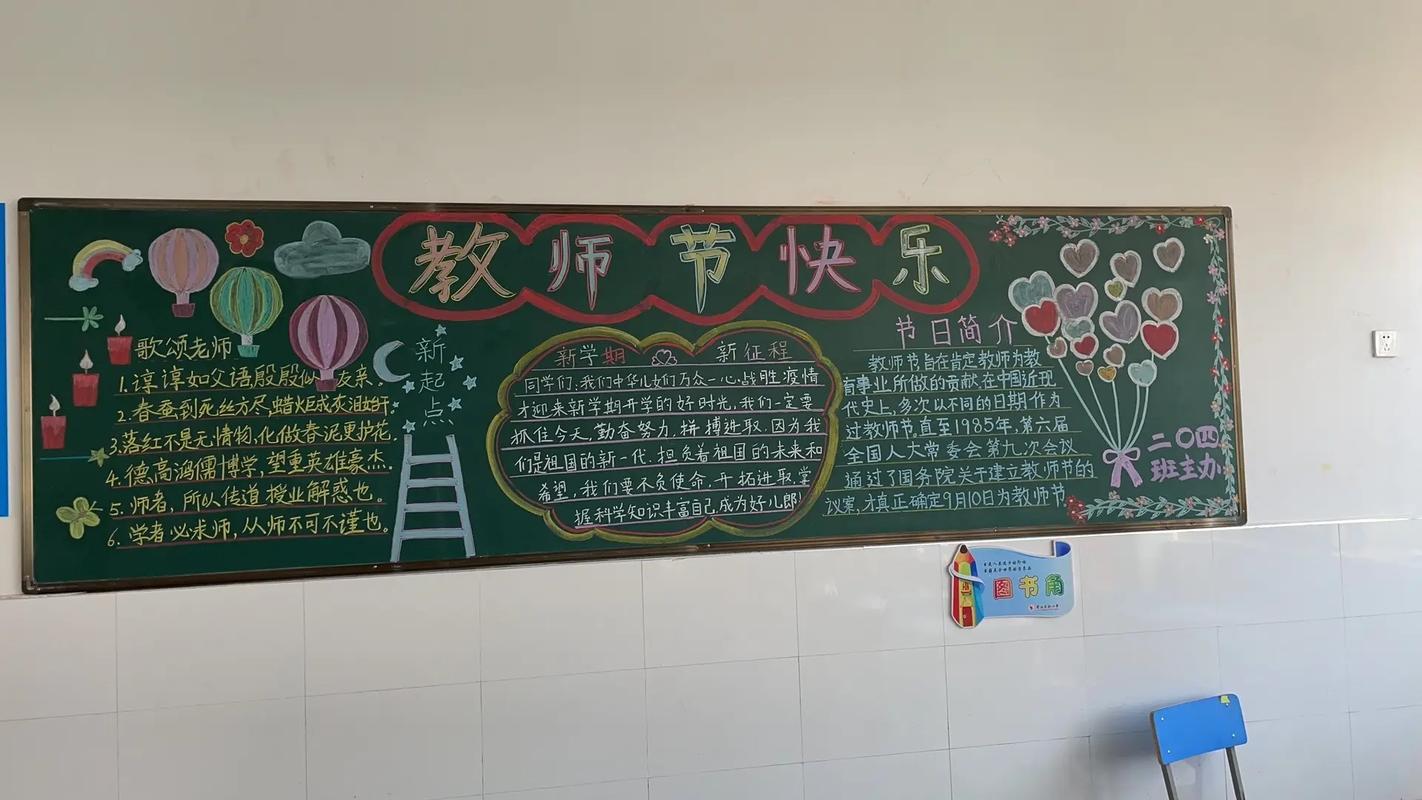 教师节快乐
歌颂老师
1.谆谆如父语殷殷似友亲。
2.春蚕到死丝方尽,蜡炬成灰泪始干。
3.落红不是无情物,化做春泥更护花。
4.德高鸿儒博学,望重英雄豪杰。
5.师者,所以传道授业解惑也。
6.学者必求师,从师不可不谨也。
新起点
新学期 新征程
同学们:我们中华儿女们万众一心战胜疫情
才迎来新学期开学的好时光,我们一定要
抓住今天,勤奋努力,拼搏进取.因为我
们是祖国的新一代.担负着祖国的未来和
希望,我们要不负使命,开拓进取.掌
握科学知识丰富自己,成为好儿郎!
节日简介
教师节旨在肯定教师为教
育事业所做的贡献.在中国近现
代史上,多次以不同的日期作为
过教师节.直至1985年,第六届
全国人大常委会第九次会议
通过了国务院关于建立教师节的
议案,才真正确定9月10日为教师节
二〇四
班主办
图书角